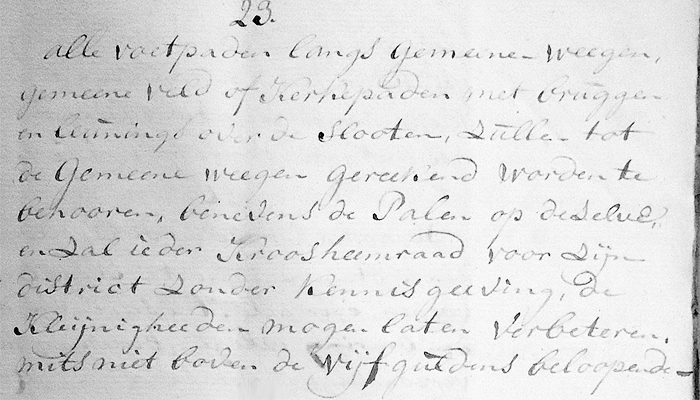 23.
alle voetpaden langs gemeene weegen,
gemeene veld of Kerkepaden met bruggen
en leunings over de slooten, zullen tot
de Gemeene weegen gereekend worden te
behooren, benevens de Palen op dezelve,
en zal ieder Kroosheemraad voor zijn
district zonder kennisgeeving, de
Kleijnigheeden mogen laten verbeteren,
mits niet boven de vijf guldens beloopende